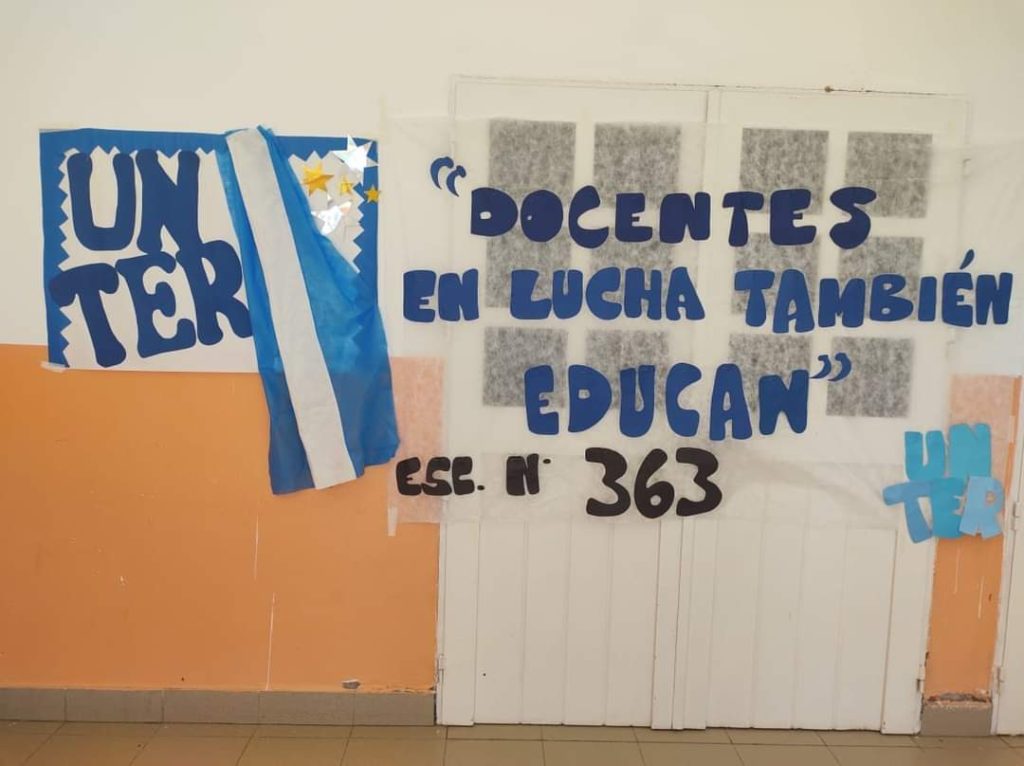 UN
TER
“DOCENTES
EN LUCHA TAMBIÉN
EDUCAN”
ESC. N° 363
UN
TER